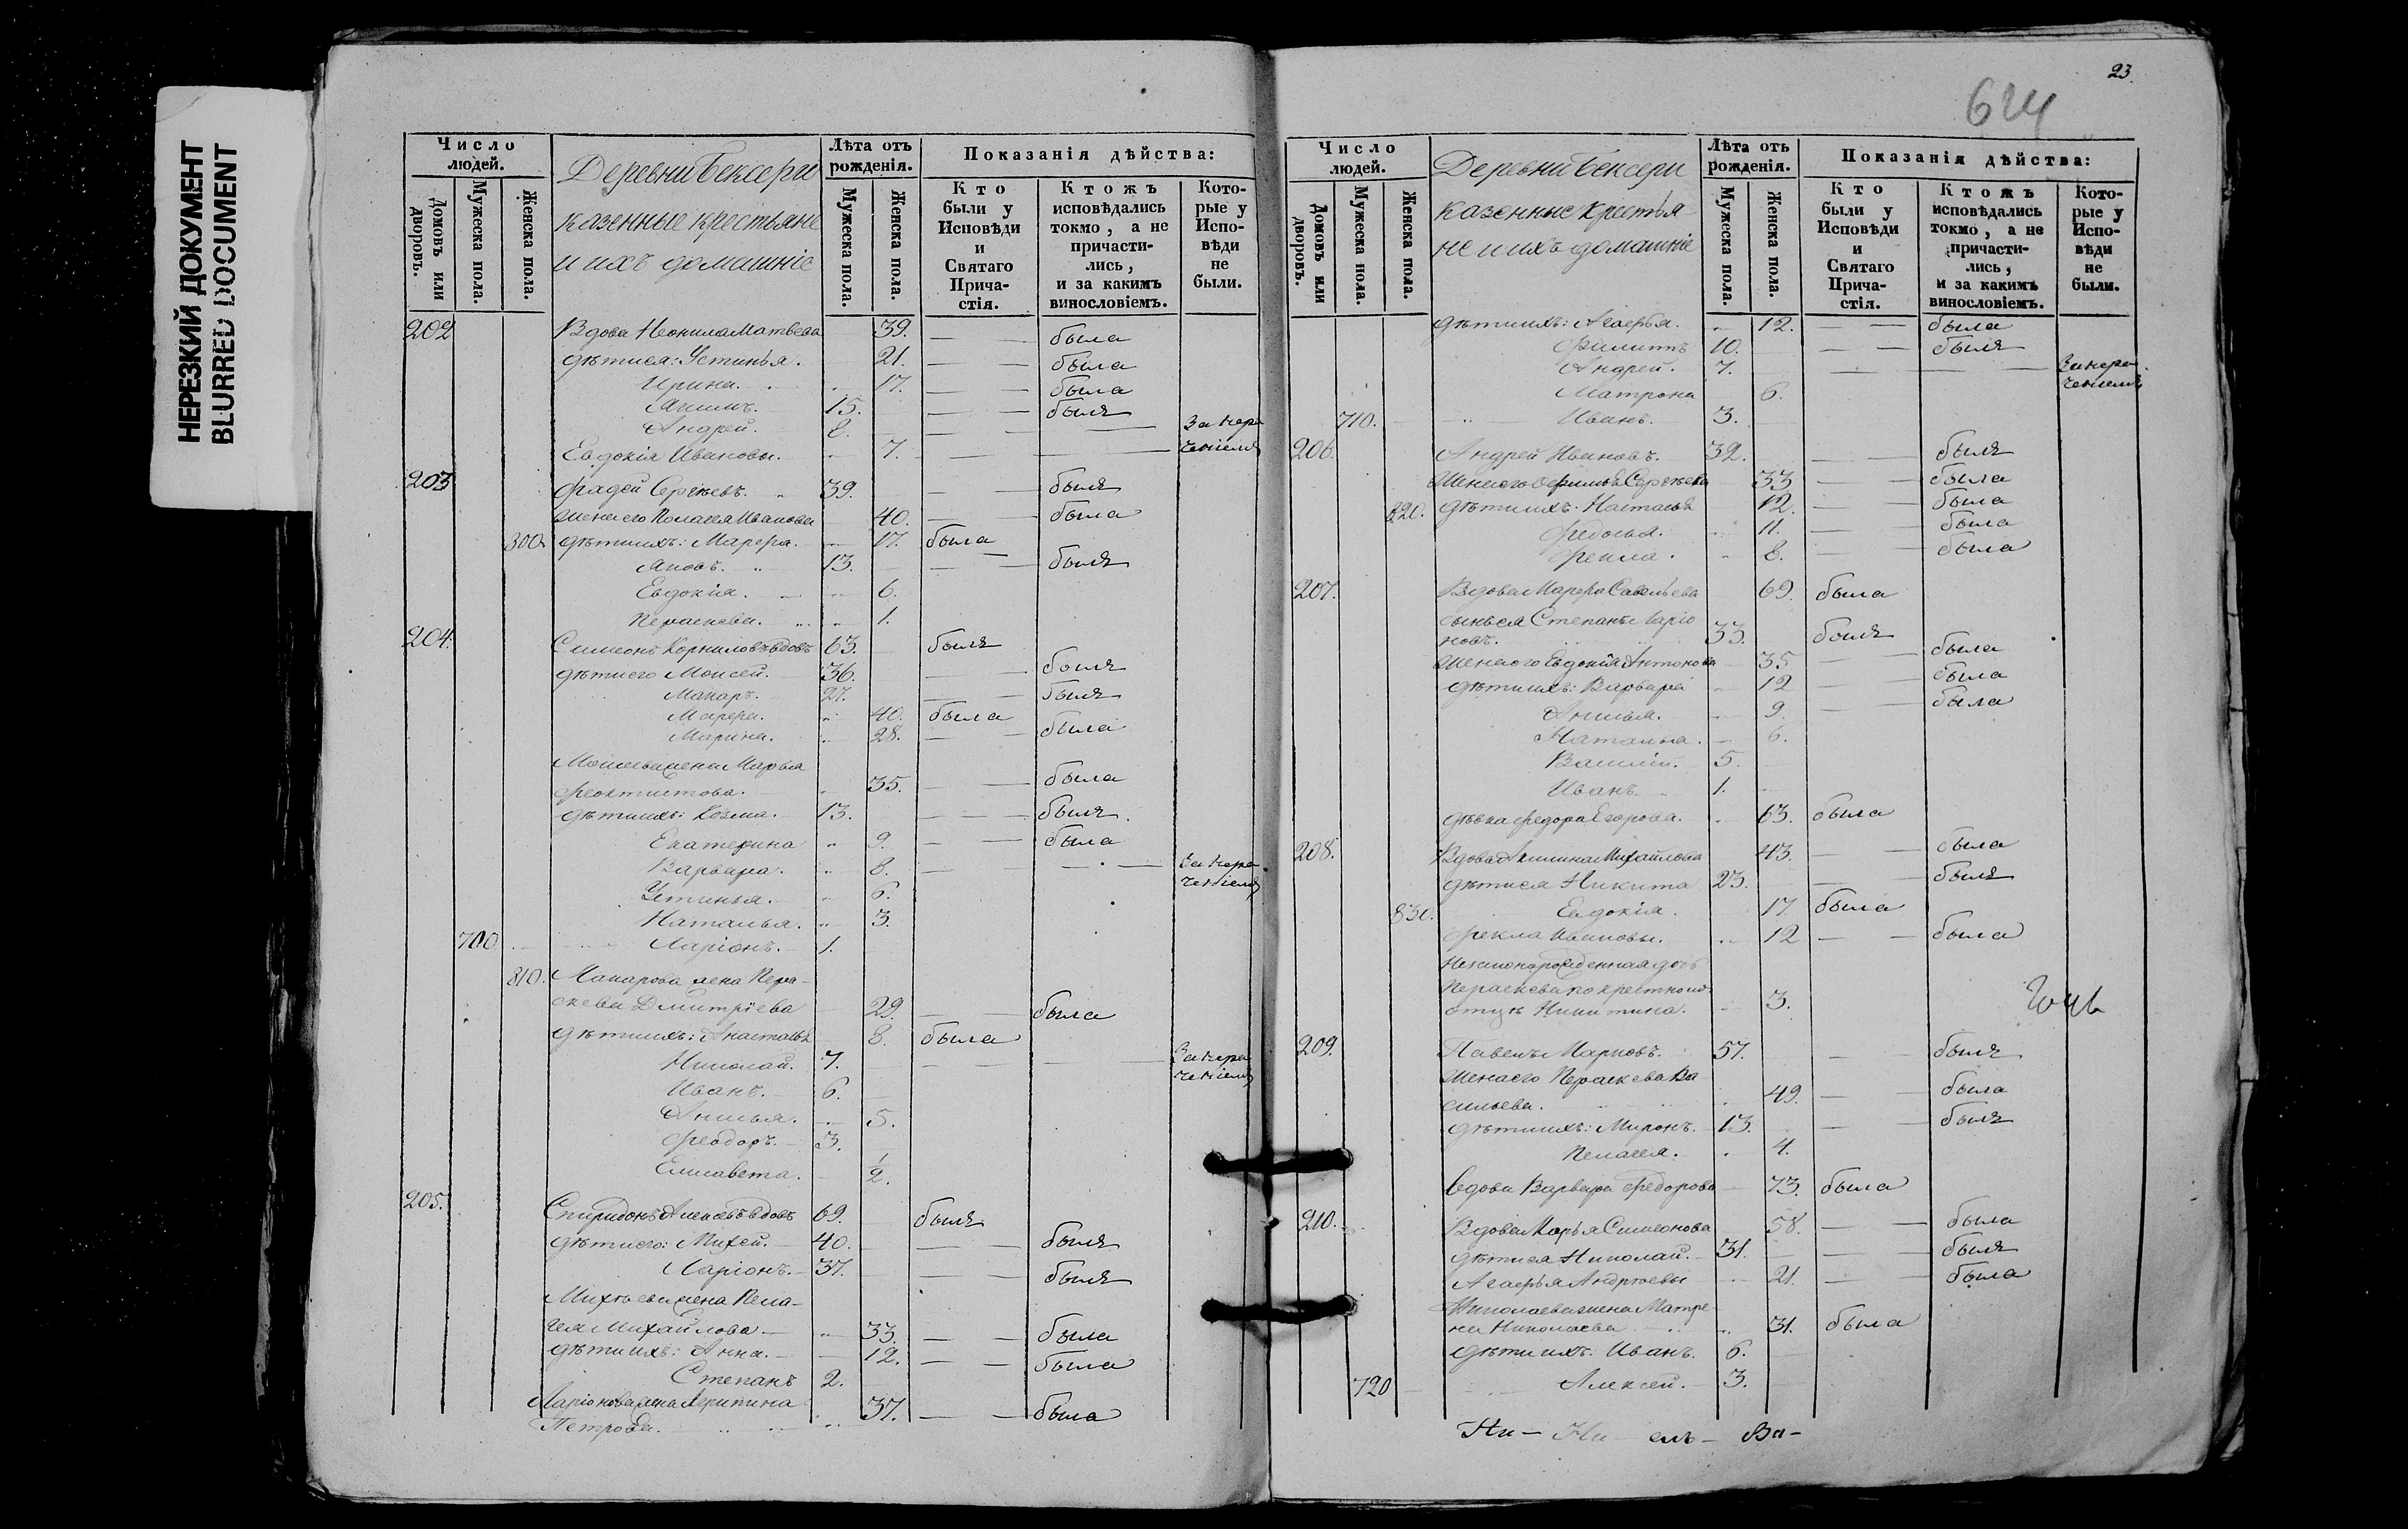 НЕРЕЗКИЙ ДОКУМЕНТ
BLURRED DOCUMENT
Число людей.
Домовъ или дворовъ.
Мужеска пола.
Женска пола.
Деревни Бексери
казенные крестьяне
и ихъ домашніе
Лѣта отъ рожденія.
Мужеска пола.
Женска пола.
Показанія дѣйства:
Кто были у Исповѣди и Святаго Прича-стія.
Ктожъ исповѣдались токмо, а не причасти-лись, и за какимъ винословіемъ.
Кото-рые у Испо-вѣди не были.
202 Вдова Неонила Матвеева 39. — — была
дѣти ея: Устинья. 21. — — была
Ирина. 17. — — была
Акимъ. 15. — — былъ
Андрей. 8. — — — За мало
Евдокія Ивановы. 7. — —
203 Фадей Сергѣевъ. 39. — — былъ
жена его Пелагея Иванова 40. — — была
800. дѣти ихъ: Марфа. 17. была
Яковъ. 13. — — былъ
Евдокія. 6.
Параскева. 1.
204. Симеонъ Корниловъ вдовъ 63. былъ
дѣти его Моисей. 36. — — былъ
Макаръ. 27. — — былъ
Марфа. 40. была
Марина. 28. — — была
Моисеева жена Марья
Феоктистова. 35. — — была
дѣти ихъ: Козма. 13. — — былъ
Екатерина 9. — — была
Варвара. 8. — — —
Устинья. 6.
Наталья. 3.
700 Ларіонъ. 1.
810. Макарова жена Пара-
скева Дмитріева 29. — — была
дѣти ихъ: Анастасія 8. была
Николай. 7. — — —
Иванъ. 6.
Анисья. 5.
Феодоръ. 3.
Елисавета. 1/2.
205. Спиридонъ вдовъ 69. былъ
дѣти его: Михей. 40. — — былъ
Ларіонъ. 37. — — былъ
Михеева жена Пела-
гея Михайлова 33. — — была
дѣти ихъ: Анна. 12. — — была
Степанъ 2.
Ларіонова жена Агрипина
Петрова. 37. — — была
23.
624
Число людей.
Домовъ или дворовъ.
Мужеска пола.
Женска пола.
Деревни Бексери
казенные крестья-
не и ихъ домашніе
Лѣта отъ рожденія.
Мужеска пола.
Женска пола.
Показанія дѣйства:
Кто были у Исповѣди и Святаго Прича-стія.
Ктожъ исповѣдались токмо, а не причасти-лись, и за какимъ винословіемъ.
Кото-рые у Испо-вѣди не были.
дѣти ихъ: Агафья. 12. — — была
Филиппъ 10. — — былъ
Андрей. 7. — — —
Матрона 6.
710. Иванъ. 3.
206. Андрей Ивановъ. 32. — — былъ
жена его Сергѣева 33 — — была
820. дѣти ихъ: Настасья 12. — — была
Федосья. 11. — — была
Фекла. 8. — — была
207. Вдова Марфа Савельева 69. была
сынъ ея Степанъ Ларіо
новъ. 33. былъ
жена его Евдокія Антонова 35 — — была
дѣти ихъ: Варвара 12 — — была
Анисья. 9. — — была
Наталья. 6.
Василій. 5.
Иванъ. 1.
дѣвка Федора Егорова. 63. была
208. Вдова Михайлова 43. — — была
дѣти ея Никита 23. — — былъ
830. Евдокія. 17. была
Фекла Ивановы. 12 — — была
Незаконорожденная дочь
Параскева по крестному
отцѣ Никитина. 3.
209. Павелъ Марковъ. 57. — былъ
жена его Параскева Ва
сильева. 49. — — была
дѣти ихъ: Миронъ. 13. — — былъ
Пелагея. 4.
Вдова Варвара Федорова 73. была
210. Вдова Марья Симеонова 58. — — была
дѣти ея Николай. 31. — — былъ
Агафья Андреевы 21. — — была
Николаева жена Матре-
на Николаева 31. была
дѣти ихъ: Иванъ. 6.
720 Алексей. 3.